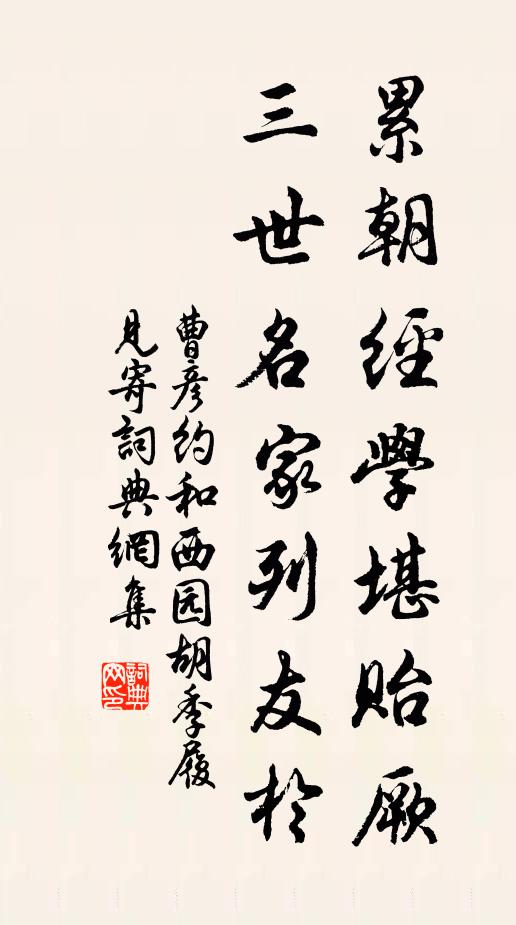 累朝經學堪貽厥
三世名家列友於
曹彦約和西园胡季履
見寄詞典網集
詞典網印